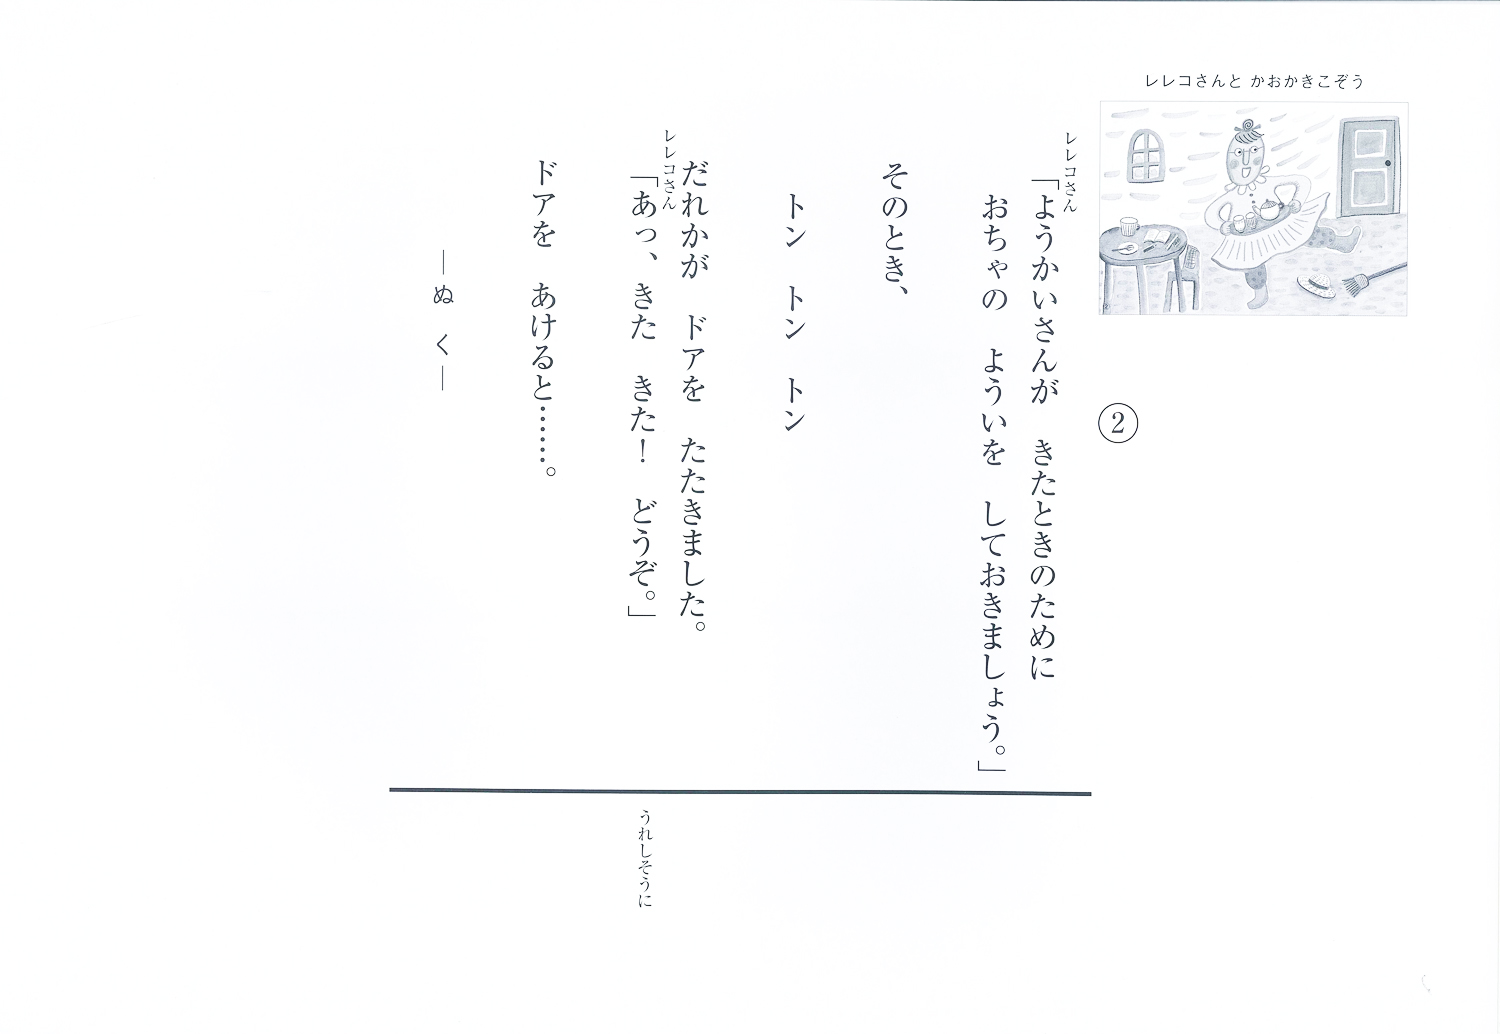 レレコさんと かおかきこぞう
②
レレコさん
「ようかいさんが きたときのために
おちゃの よういを しておきましょう。」
そのとき、
トン トン トン
だれかが ドアを たたきました。
レレコさん
「あっ、きた きた! どうぞ。」
うれしそうに
ドアを あけると……。
―ぬ く―